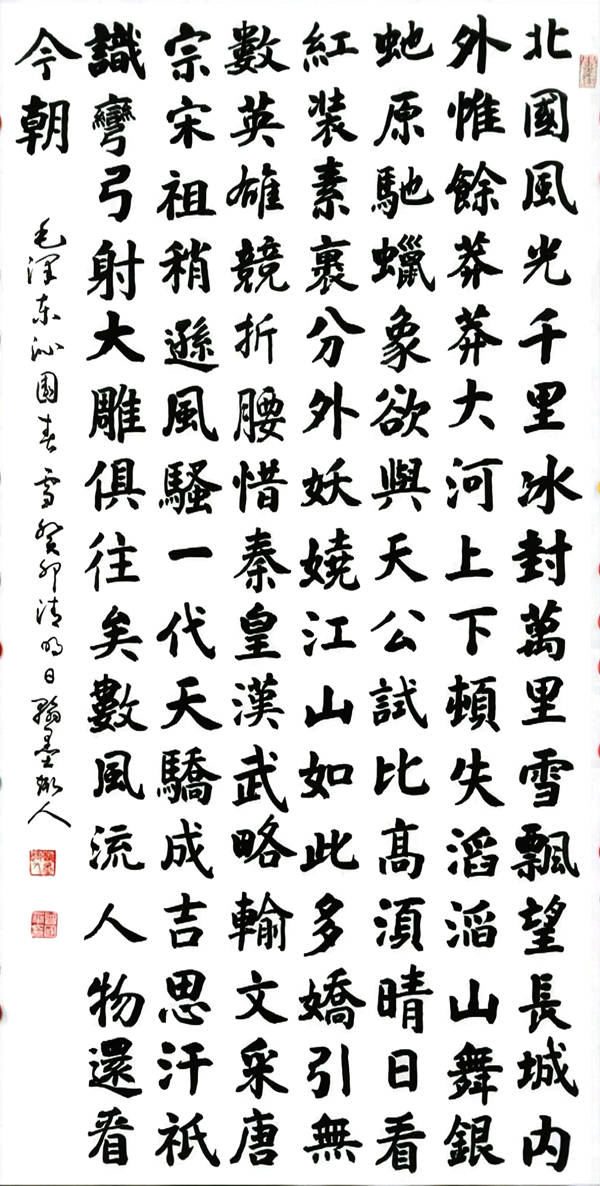 北國風光千里冰封萬里雪飄望長城内
外惟餘莽莽大河上下頓失滔滔山舞銀
虵原馳蠟象欲與天公試比高須晴日看
紅装素裹分外妖嬈江山如此多嬌引無
數英雄競折腰惜秦皇漢武略輸文采唐
宗宋祖稍遜風騷一代天驕成吉思汗祇
識彎弓射大雕俱往矣數風流人物還看
今朝
毛澤东沁園春雪癸卯清明日翰墨人